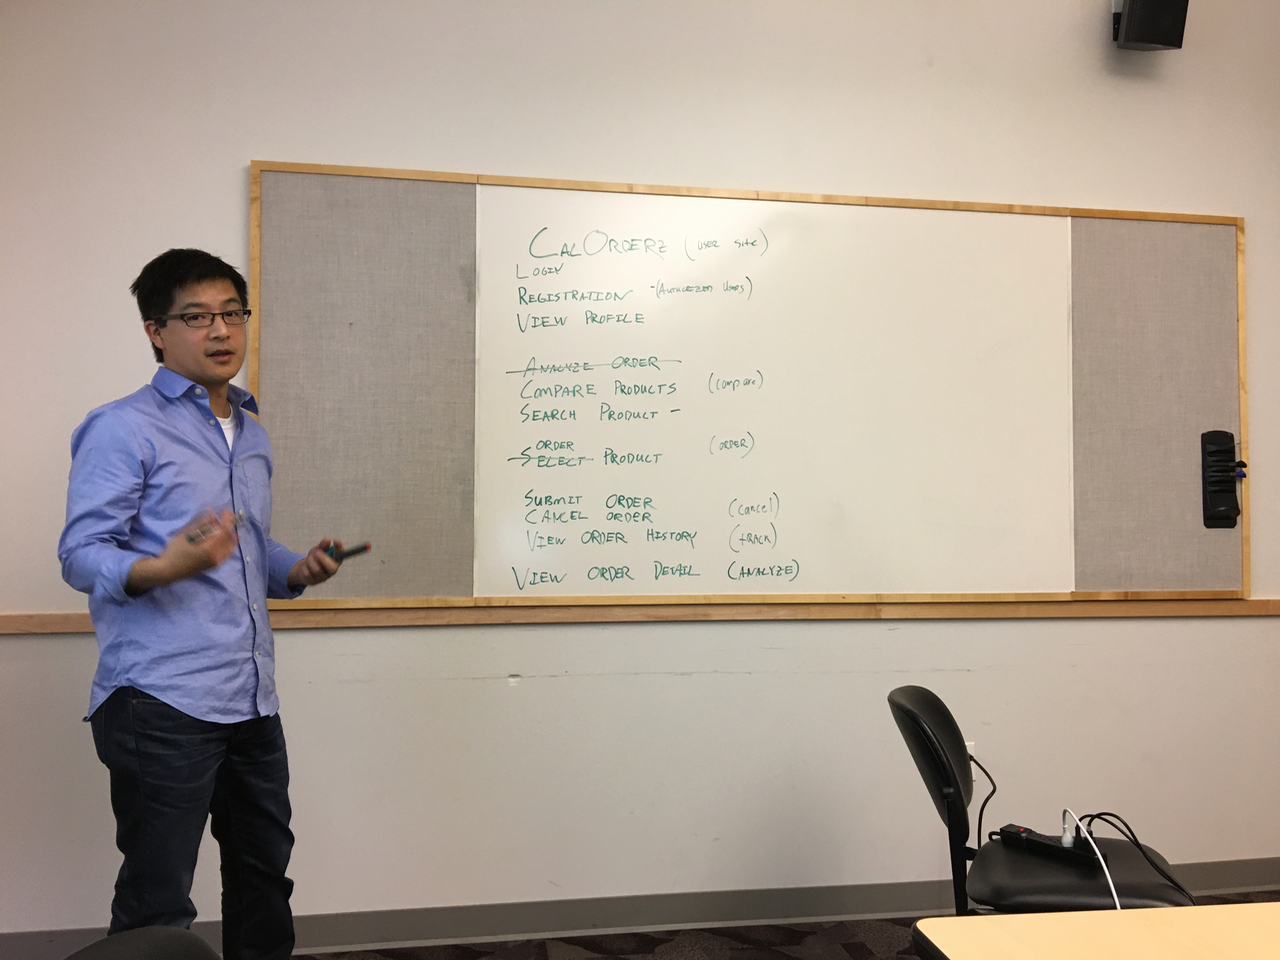 CALORDERZ (USER SITE)
LOGIN
REGISTRATION -(AUTHORIZED USERS)
VIEW PROFILE
ANALYZE ORDER
COMPARE PRODUCTS (compare)
SEARCH PRODUCT -
ORDER
SELECT PRODUCT (ORDER)
SUBMIT ORDER
CANCEL ORDER (cancel)
VIEW ORDER HISTORY (tRACK)
VIEW ORDER DETAIL (ANALYZE)